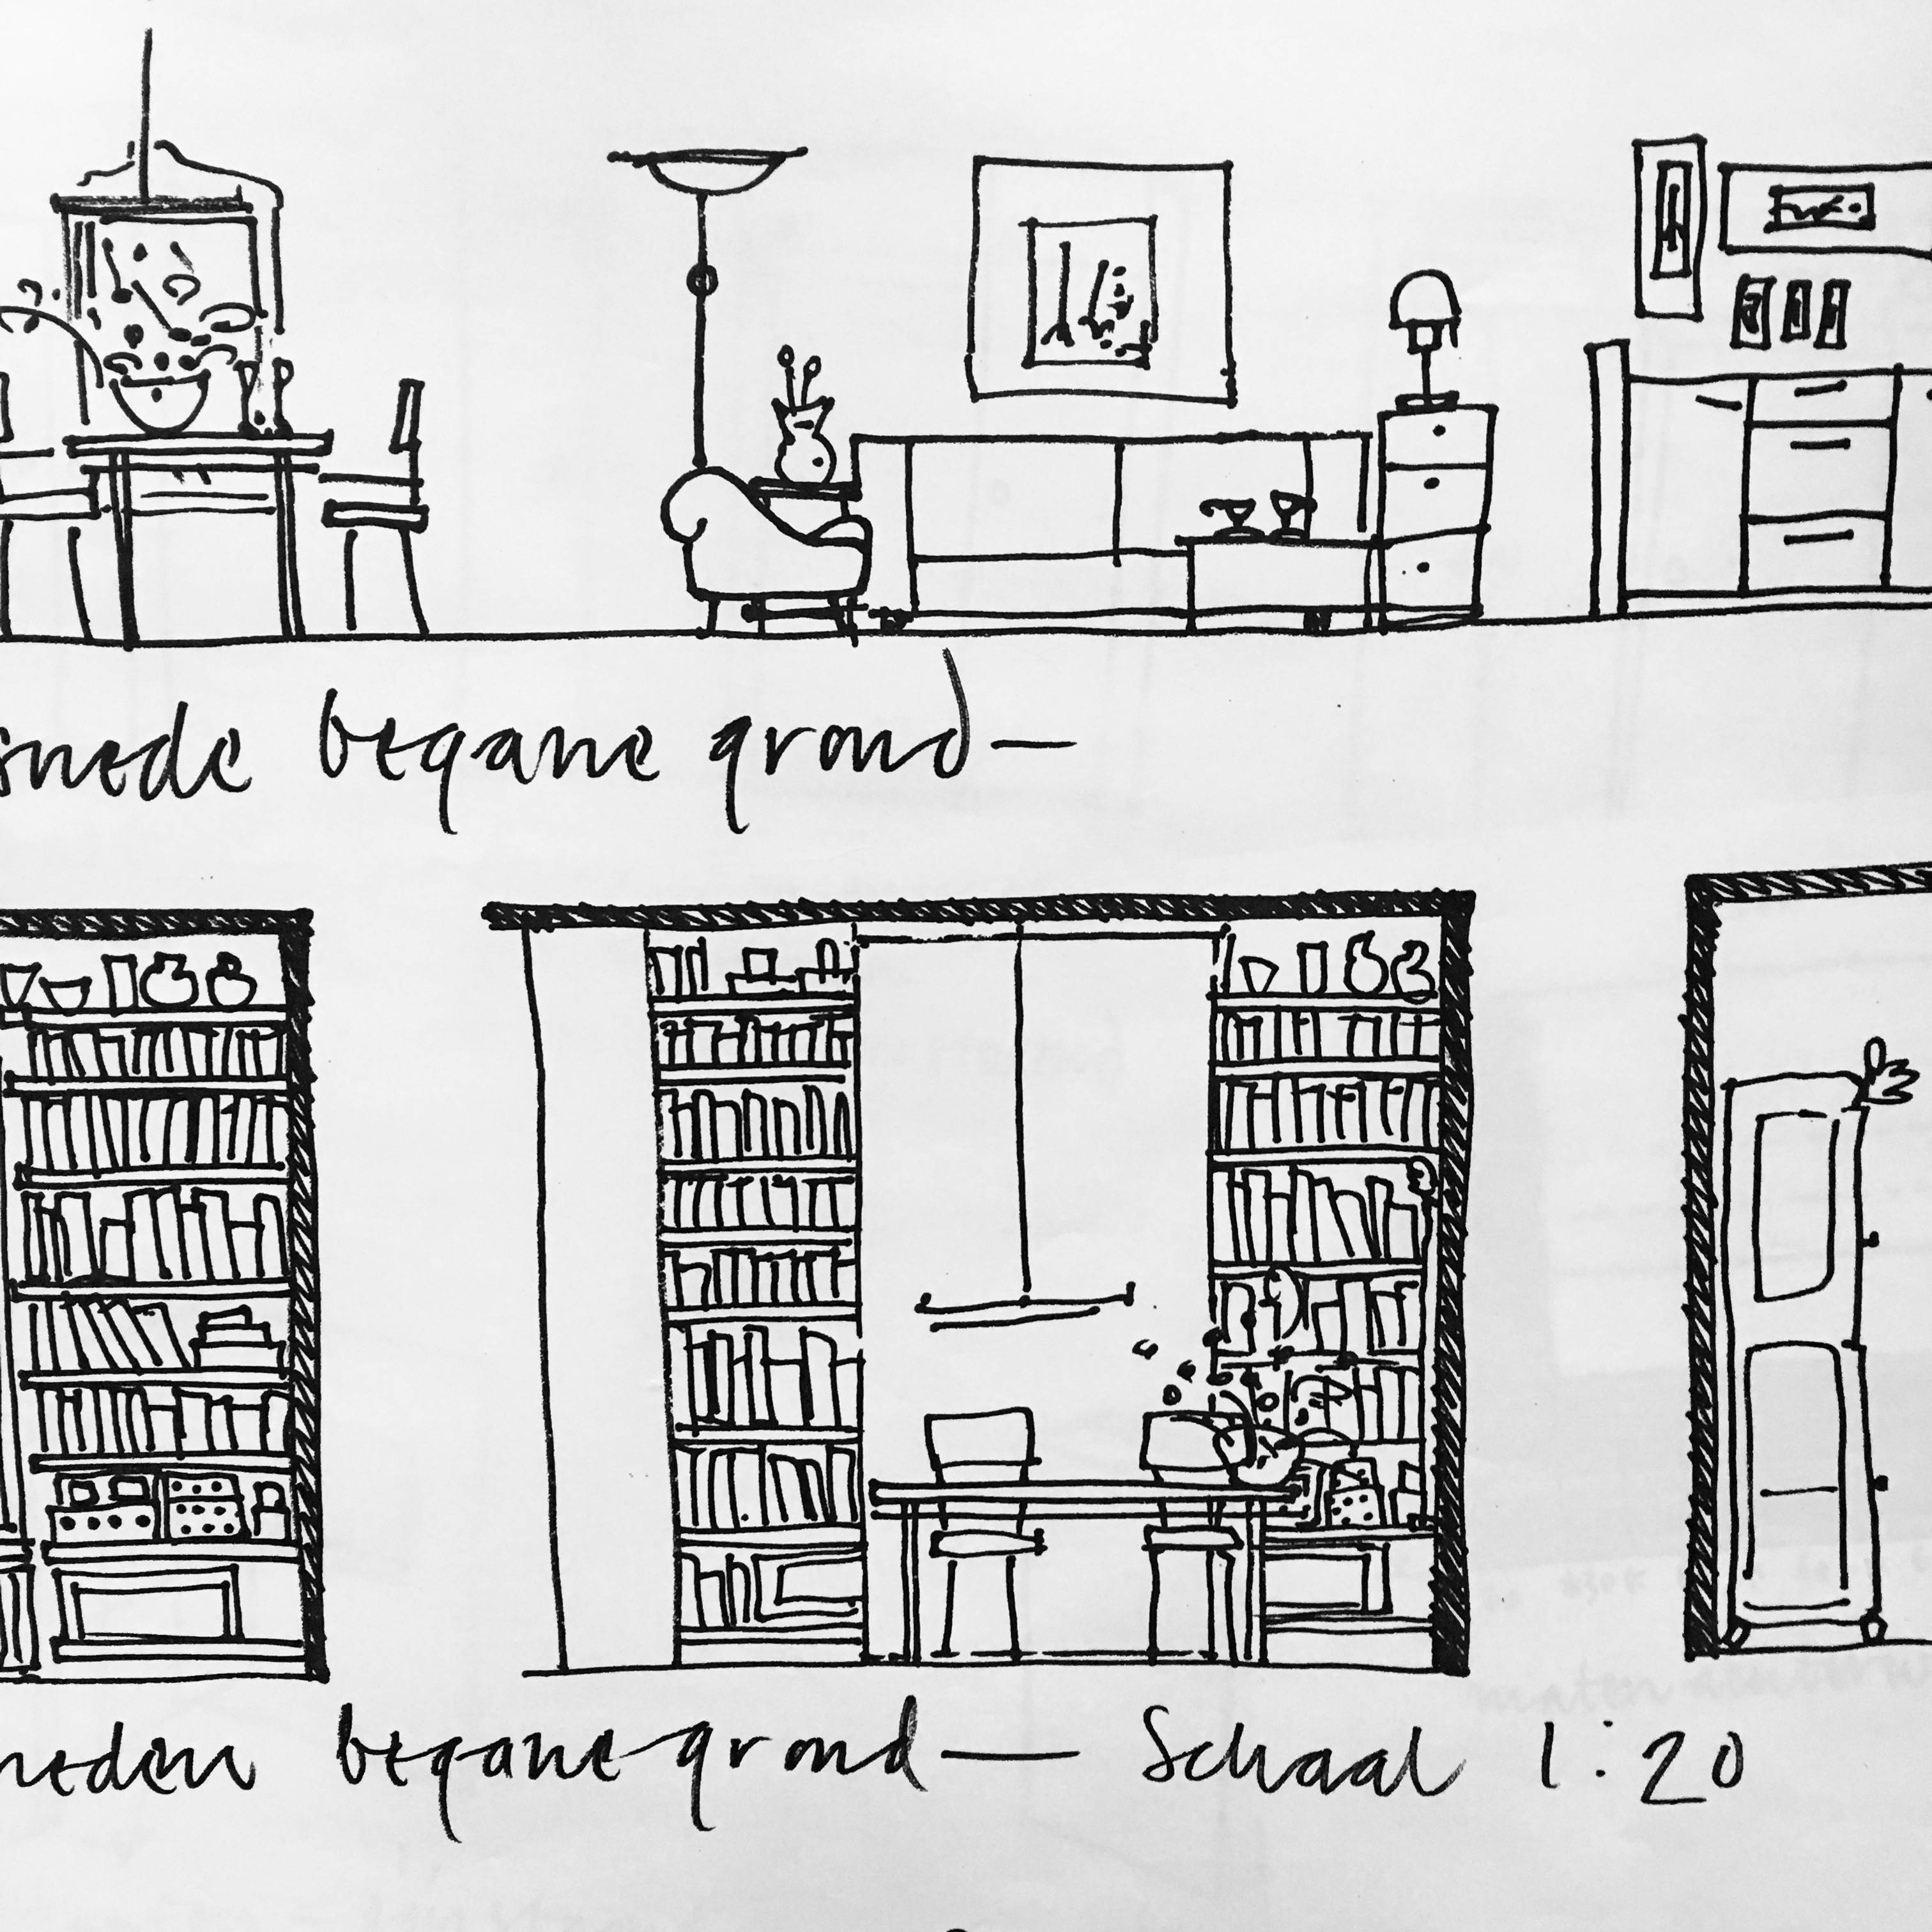 snede begane grond —
neden begane grond — Schaal 1:20